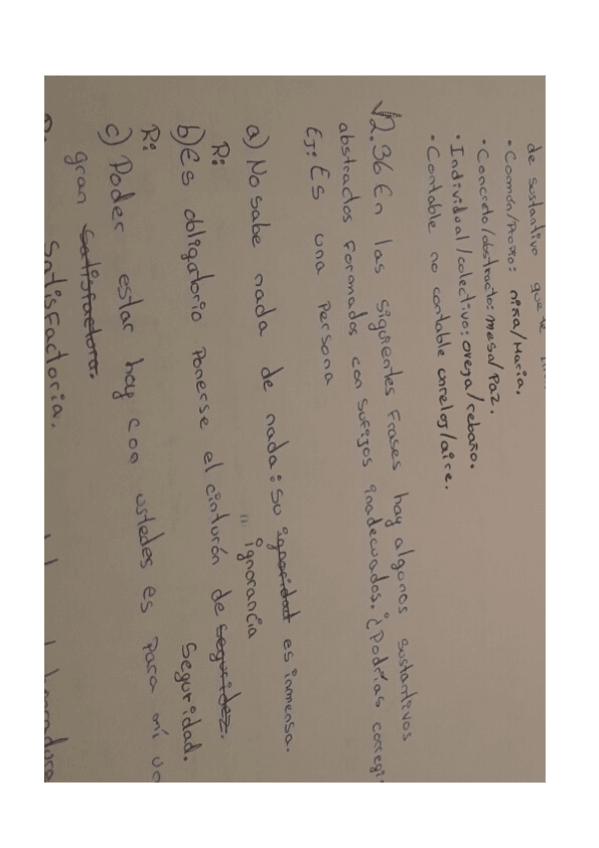 de sustantivo que se
• Común/Propio: niña/María.
• Concreto/abstracto: mesa/Paz.
• Individual/colectivo: oveja/rebaño.
• Contable no contable anrelos/aire.
2.36 En las siguientes frases hay algunos sustantivos
abstrados formados con sufijos inadecuados. ¿Podrías corregi
Ej: Es una persona
a) No sabe nada de nada: su ignoridad es inmensa.
R: ignorancia
b) Es obligatorio ponerse el cinturón de seguridez.
R: Seguridad.
c) Poder estar hoy con ustedes es para mí
gran satisfactora.
Satisfactoria.